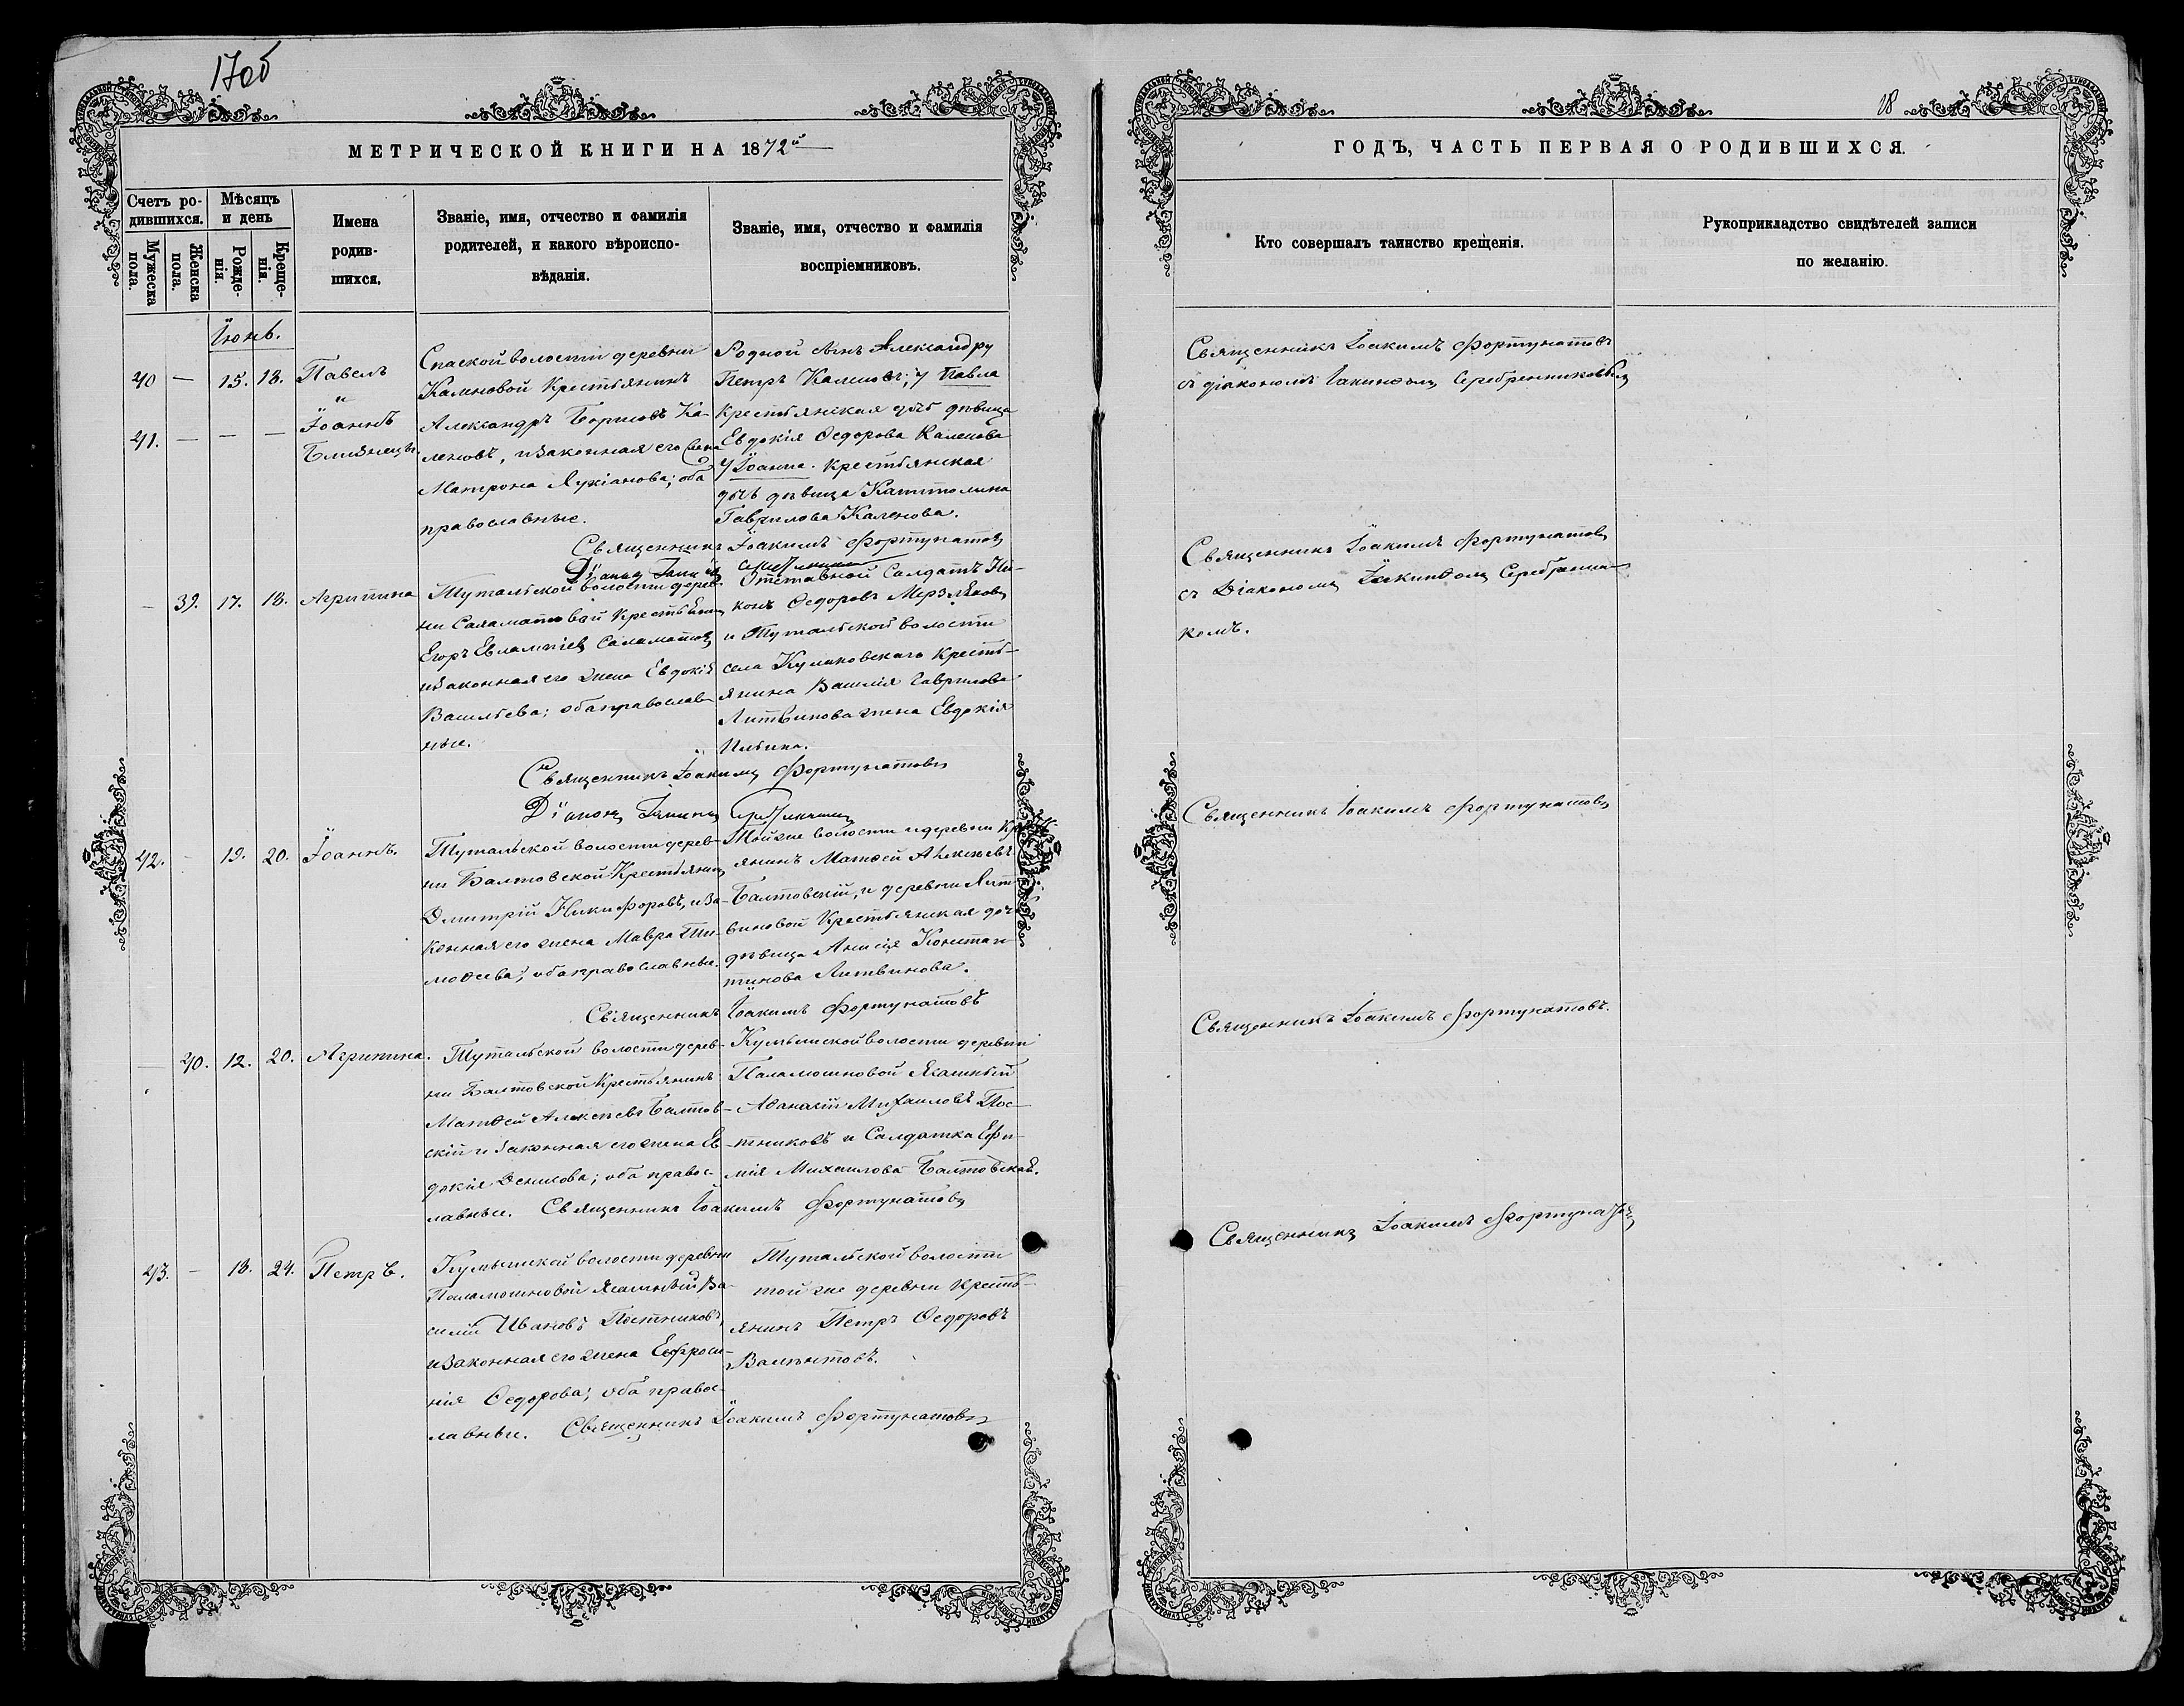 17об
МЕТРИЧЕСКОЙ КНИГИ НА 1872й
Счетъ ро-
дившихся.
Мужеска пола.
Женска пола.
Мѣсяцъ
и день
Рожде-
нія.
Креще-
нія.
Имена
родив-
шихся.
Званіе, имя, отчество и фамилія
родителей, и какого вѣроиспо-
вѣданія.
Званіе, имя, отчество и фамилія
воспріемниковъ.
Іюнь.
40 — 15. 18. Павелъ
и
41. — — — Іоаннъ
Близнецы
Спаской волости деревни
Каленовой Крестьянинъ
Александръ Борисовъ Ка-
леновъ, и законная его жена
Матрона Лукіанова; оба
православные.
Родной сынъ Александру
Петръ Каленовъ; у Павла
крестьянская дочь дѣвица
Евдокія Ѳедорова Каленова
у Іоанна. крестьянская
дочь дѣвица Капитолина
Гаврилова Каленова.
Священникъ Іоакимъ Фортунатовъ
— 39. 17. 18. Агрипина
Тутальской волости дерев-
ни Саламатовой Крестьянинъ
Егоръ Евлампіевъ Саламатовъ
и законная его жена Евдокія
Васильева; оба православ-
ные.
Отставной Салдатъ Ни-
конъ Ѳедоровъ Мерзляковъ
и Тутальской волости
села Куликовскаго крестъ-
янина Василія Гаврилова
Литвинова жена Евдокія
Ильина.
Священникъ Іоакимъ Фортунатовъ
42. — 19. 20. Іоаннъ.
Тутальской волости дерев-
ни Балтовской Крестьянинъ
Дмитрій Никифоровъ, и за-
конная его жена Мавра Ти-
моѳеева; оба православные.
Той же волости и деревни Кресть-
янинъ Матѳей Алексѣевъ
Балтовскій, и деревни Лит-
виновой Крестьянская дочь
дѣвица Анисія Констан-
тинова Литвинова.
Священникъ Іоакимъ Фортунатовъ
— 40. 12. 20. Агрипина.
Тутальской волости дерев-
ни Балтовской Крестьянинъ
Матѳей Алексѣевъ Балтов-
скій и законная его жена Ев-
докія Денисова; оба правос-
лавные.
Кумышской волости деревни
Паламошновой Ясашный
Аѳанасій Михаиловъ Пос-
тниковъ и Салдатка Ефи-
мія Михаилова Балтовская.
Священникъ Іоакимъ Фортунатовъ
43. — 18. 24. Петръ.
Кумышской волости деревни
Паламошновой Ясашный Ва-
силій Ивановъ Постниковъ,
и законная его жена Ефроси-
нія Ѳедорова; оба правос-
лавные.
Тутальской волости
той же деревни кресть-
янинъ Петръ Ѳедоровъ
Священникъ Іоакимъ Фортунатовъ
18
ГОДЪ, ЧАСТЬ ПЕРВАЯ О РОДИВШИХСЯ.
Кто совершалъ таинство крещенія.
Рукоприкладство свидѣтелей записи
по желанію.
Священникъ Іоакимъ Фортунатовъ
съ діакономъ Іакинѳомъ Серебренниковымъ
Священникъ Іоакимъ Фортунатовъ
съ Діакономъ Іакинѳомъ Серебренни-
комъ.
Священникъ Іоакимъ Фортунатовъ
Священникъ Іоакимъ Фортунатовъ.
Священникъ Іоакимъ Фортунатовъ